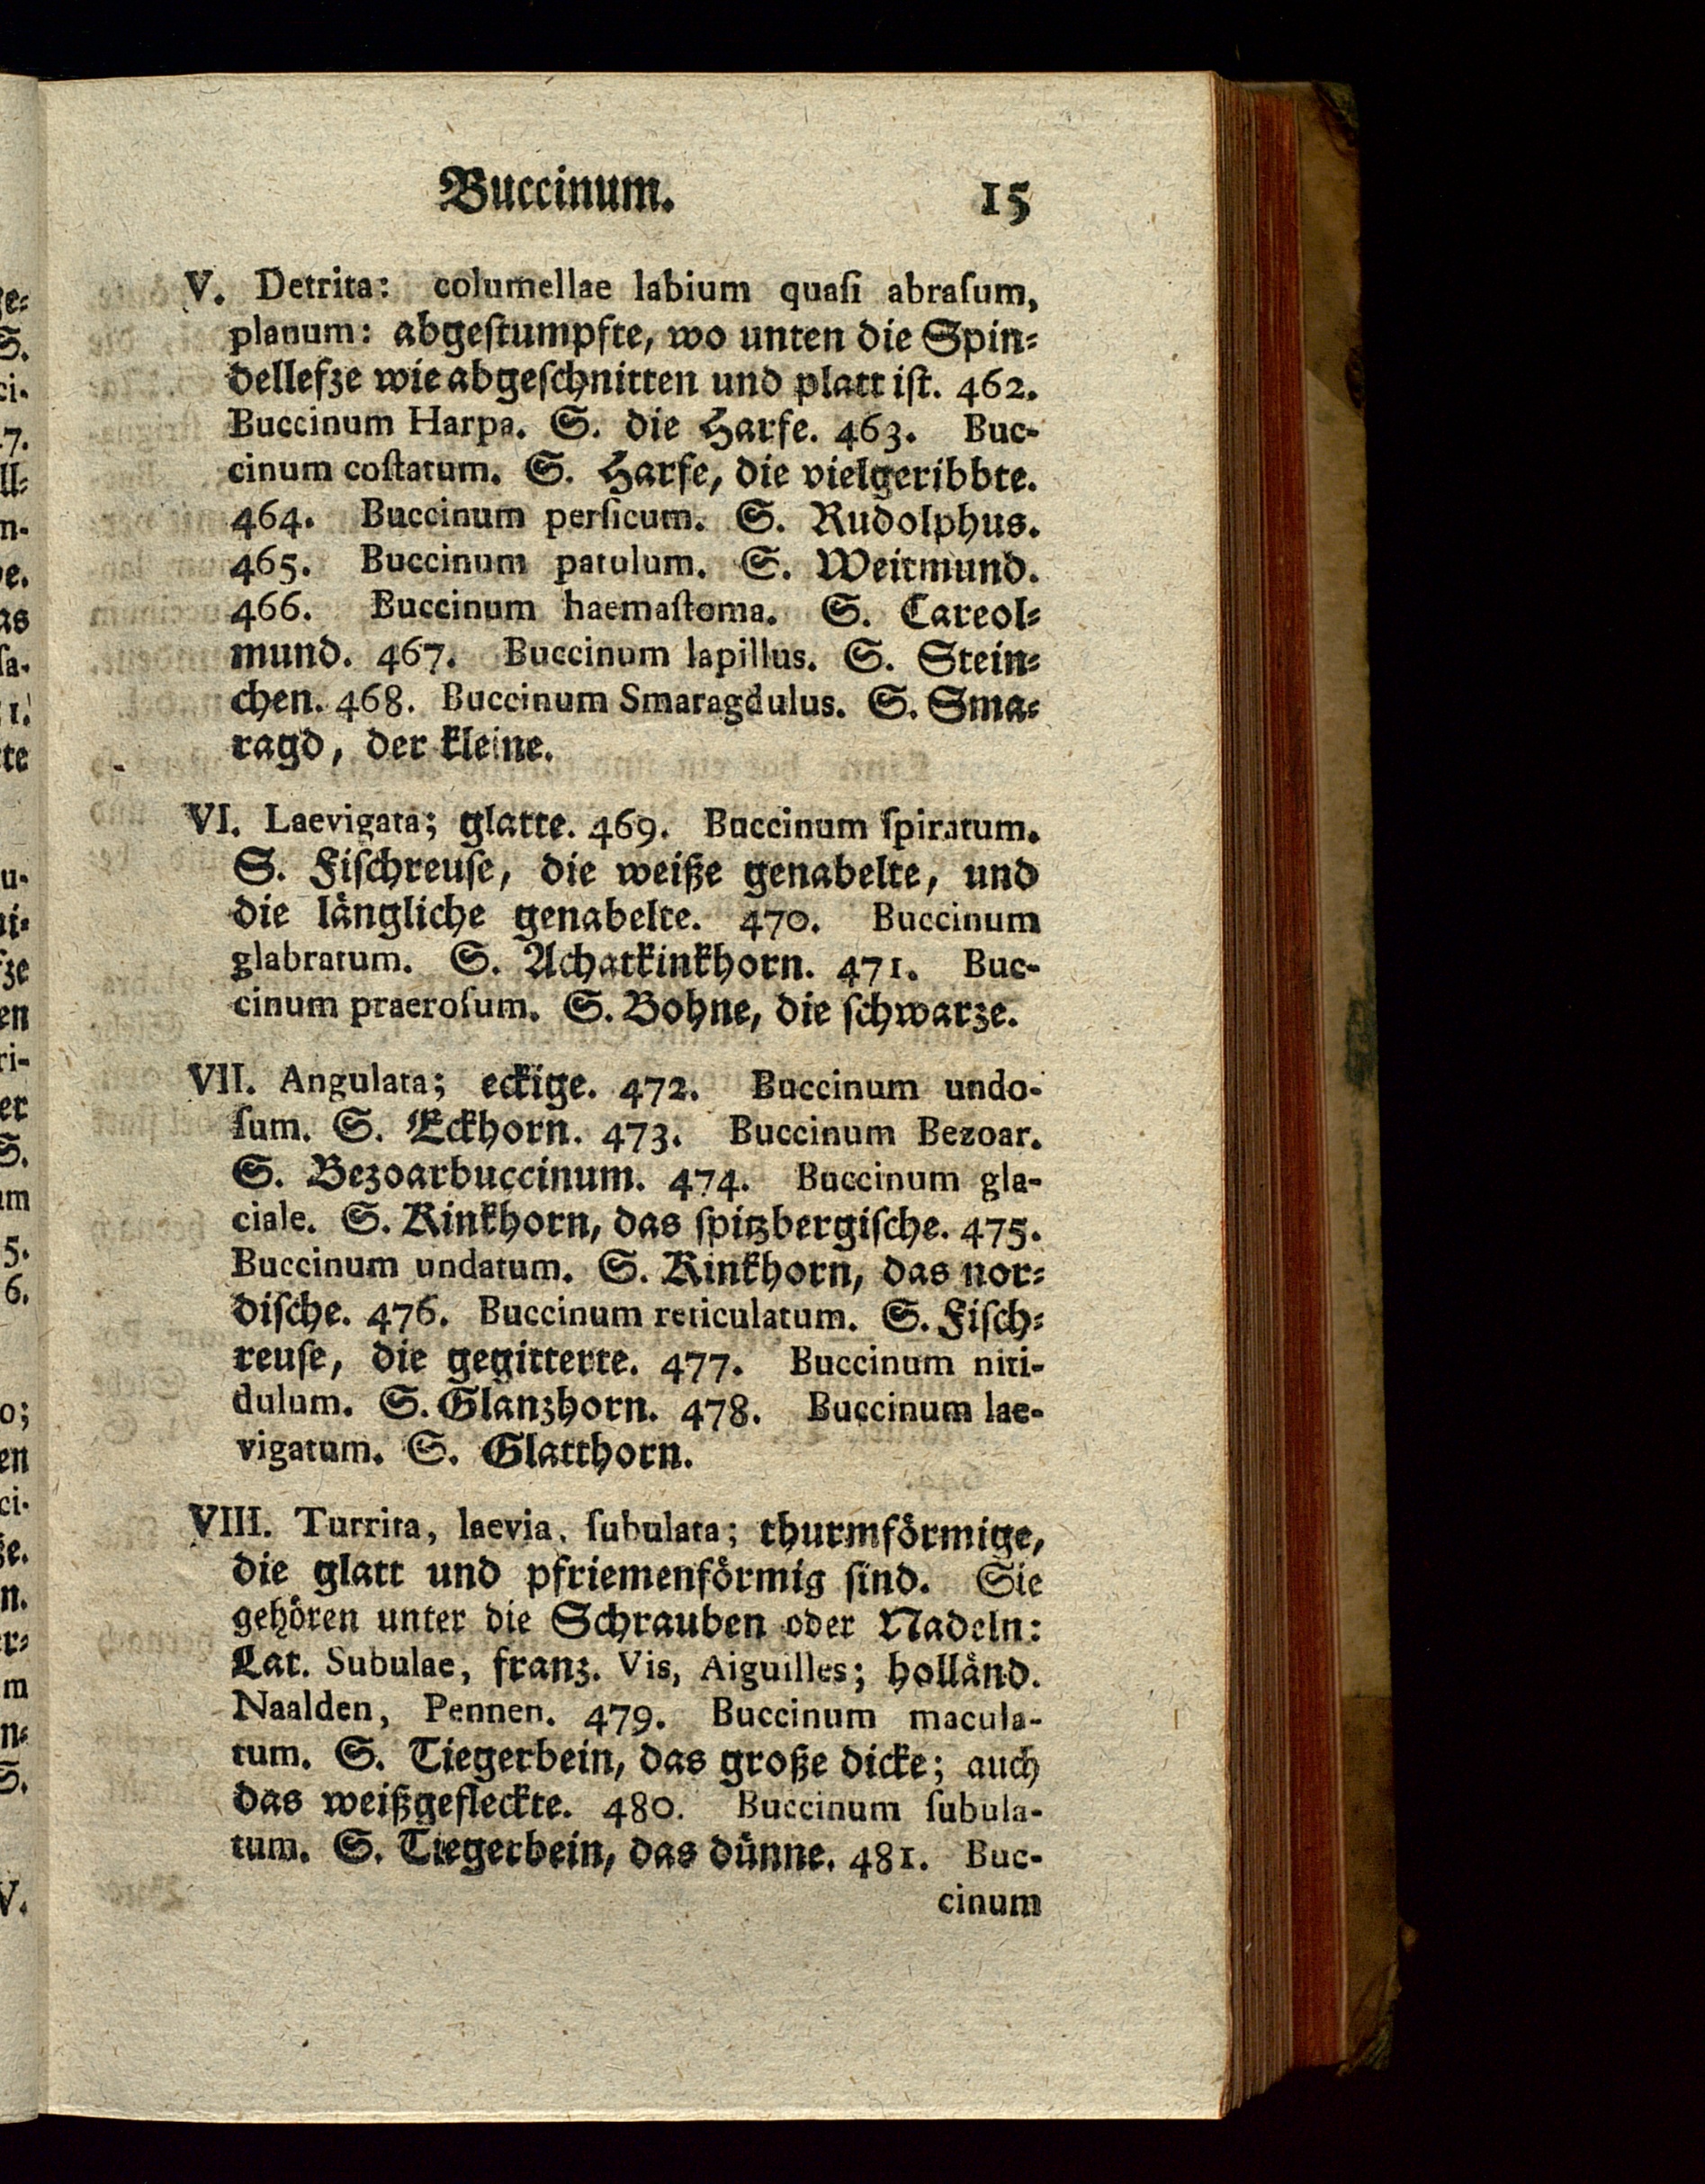 Buccinum. 15
V. Detrita: columellae labium quaſi abraſum,
planum: abgeſtumpfte, wo unten die Spin⸗
dellefze wie abgeſchnitten und platt iſt. 462.
Buccinum Harpa. S. die Harfe. 463. Buc-
cinum coſtatum. S. Harfe, die vielgeribbte.
464. Buccinum perſicum. S. Rudolphus.
465. Buccinum patulum. S. Weitmund.
466. Buccinum haemaſtoma. S. Careol⸗
mund. 467. Buccinum lapillus. S. Stein⸗
chen. 468. Buccinum Smaragdulus. S. Sma⸗
ragd, der kleine.
VI. Laevigata; glatte. 469. Buccinum ſpiratum.
S. Fiſchreuſe, die weiße genabelte, und
die längliche genabelte. 470. Buccinum
glabratum. S. Achatkinkhorn. 471. Buc-
cinum praeroſum. S. Bohne, die ſchwarze.
VII. Angulata; eckige. 472. Buccinum undo-
ſum. S. Eckhorn. 473. Buccinum Bezoar.
S. Bezoarbuccinum. 474. Buccinum gla-
ciale. S. Kinkhorn, das ſpitzbergiſche. 475.
Buccinum undatum. S. Kinkhorn, das nor⸗
diſche. 476. Buccinum reticulatum. S. Fiſch⸗
reuſe, die gegitterte. 477. Buccinum niti-
dulum. S. Glanzhorn. 478. Buccinum lae-
vigatum. S. Glatthorn.
VIII. Turrita, laevia, ſubulata; thurmförmige,
die glatt und pfriemenförmig ſind. Sie
gehören unter die Schrauben oder Nadeln:
Lat. Subulae, franz. Vis, Aiguilles; holländ.
Naalden, Pennen. 479. Buccinum macula-
tum. S. Tiegerbein, das große dicke; auch
das weißgefleckte. 480. Buccinum ſubula-
tum. S. Tiegerbein, das dünne. 481. Buc-
cinum